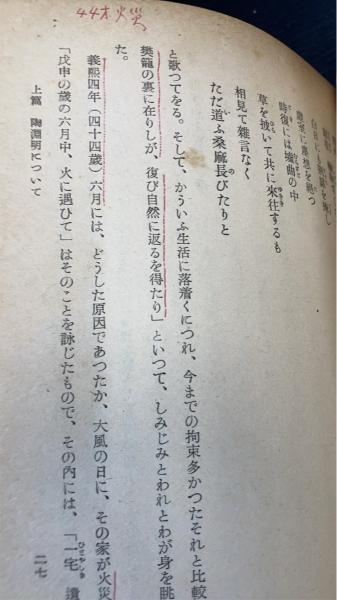 44才火災
時復には墟曲の中
草を披いて共に來往するも
相見て雜言なく
ただ道ふ桑麻長びたりと
と歌つてをる。そして、かういふ生活に落着くにつれ、今までの拘束多かつたそれと比較
樊籠の裏に在りしが、復び自然に返るを得たり」といつて、しみじみとわれとわが身を眺
た。
義熙四年(四十四歳)六月には、どうした原因であつたか、大風の日に、その家が火災
「戊申の歳の六月中、火に遇ひて」はそのことを詠じたもので、その內には、「一宅
上篇 陶淵明について
二七